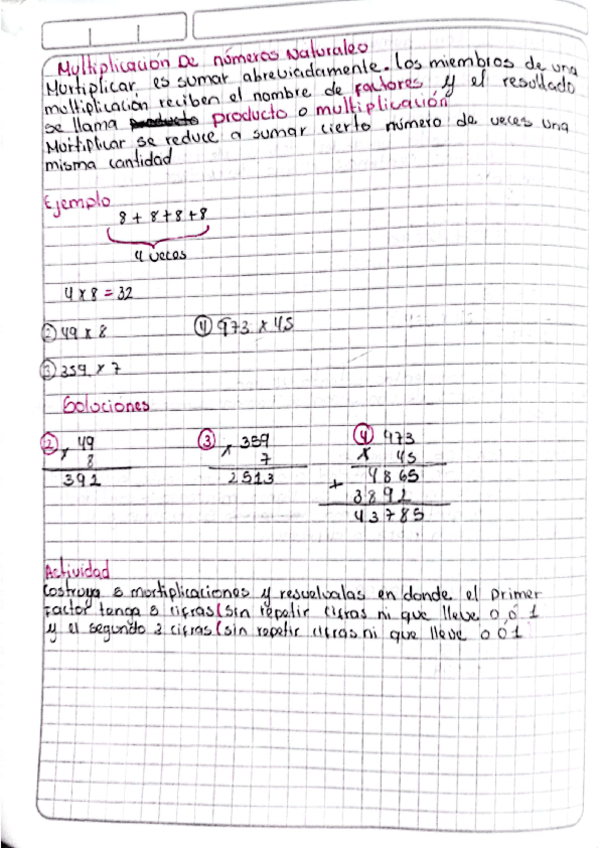 Multiplicación De números Naturales
Multiplicar, es sumar abreviadamente. Los miembros de una
moltiplicación reciben el nombre de factores y el resultado
se llama producto o multiplicación
Moltiplicar se reduce a sumar cierto número de veces una
misma cantidad
Ejemplo
8 + 8 + 8 + 8
4 veces
4 x 8 = 32
② 49 x 8 ④ 973 x 45
③ 359 x 7
Soluciones
② 49 ③ 359 ④ 973
x 8 x 7 x 45
392 2513 4865
+ 3892
43785
Actividad
Costruya 8 mortiplicaciones y resuelvalas en donde el primer
Factor tenga 8 cifras (sin repetir cifras ni que lleve 0, ó 1
y el segundo 3 cifras (sin repetir cifras ni que lleve 0 ó 1